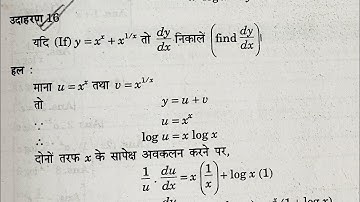 उदाहरण 16
यदि (If) y = x^x + x^{1/x} तो dy/dx निकालें (find dy/dx)
हल :
माना u = x^x तथा v = x^{1/x}
तो y = u + v
∵ u = x^x
∴ log u = x log x
दोनों तरफ x के सापेक्ष अवकलन करने पर,
1/u · du/dx = x(1/x) + log x (1)